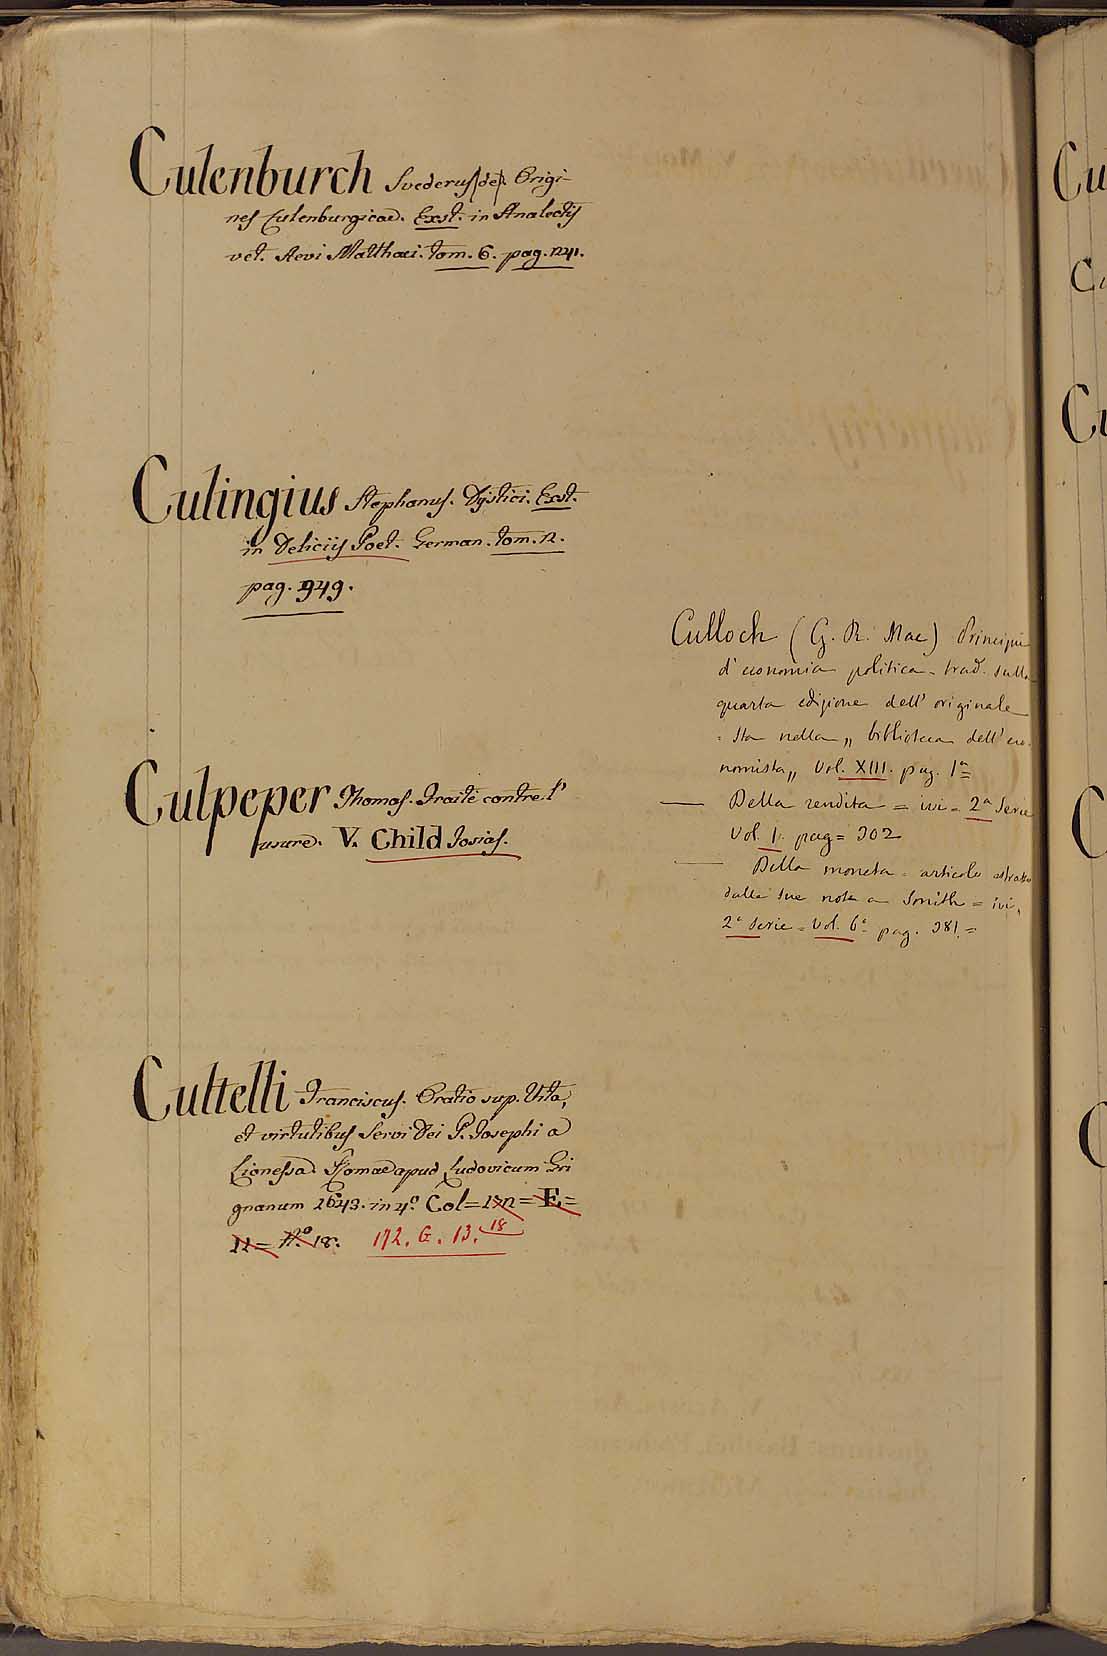 Culenburch Svederus (de). Origi-
nes Culenburgicae. Exst. in Analectis
vet. Aevi Matthaei. tom. 6. pag. 241.
Culingius Stephanus. Dystici. Exst.
in Deliciis Poet. German. tom. 2.
pag. 949.
Culpeper Thomas. Traité contre l'
usure. V. Child Josias.
Cultelli Franciscus. Oratio sup. Vita,
et virtutibus Servi Dei P. Josephi a
Lionessa. Romae apud Ludovicum Gri
gnanum 1643. in 4.º Col = = E =
12 = N.º 18. 172. G. 13. 18
Culloch (G. R. Mac) Principii
d'economia politica - trad. sulla
quarta edizione dell' originale
= Sta nella „ biblioteca dell' eco-
nomista „ Vol. XIII. pag. 1ª =
— Della rendita = ivi = 2ª Serie
Vol. 1. pag = 302
— Della moneta = articolo estratto
dalle sue note a Smith = ivi,
2ª Serie = Vol. 6º pag. 381. =
Cu
C
Cu
C
C